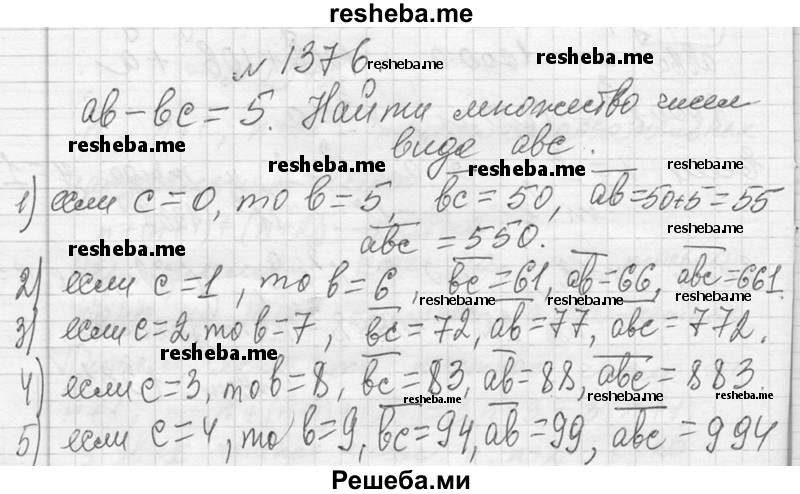 resheba.me
№ 1376. resheba.me resheba.me
ab – bc = 5. Найти множество чисел
resheba.me resheba.me
вида abc.
resheba.me resheba.me resheba.me
1) если c = 0, то b = 5, bc = 50, ab = 50+5 = 55
abc = 550.
resheba.me resheba.me
2) если c = 1, то b = 6, bc = 61, ab = 66, abc = 661.
resheba.me resheba.me resheba.me
3) если c = 2, то b = 7, bc = 72, ab = 77, abc = 772.
resheba.me resheba.me
4) если c = 3, то b = 8, bc = 83, ab = 88, abc = 883.
resheba.me resheba.me
5) если c = 4, то b = 9, bc = 94, ab = 99, abc = 994
resheba.me resheba.me
Решеба.ми